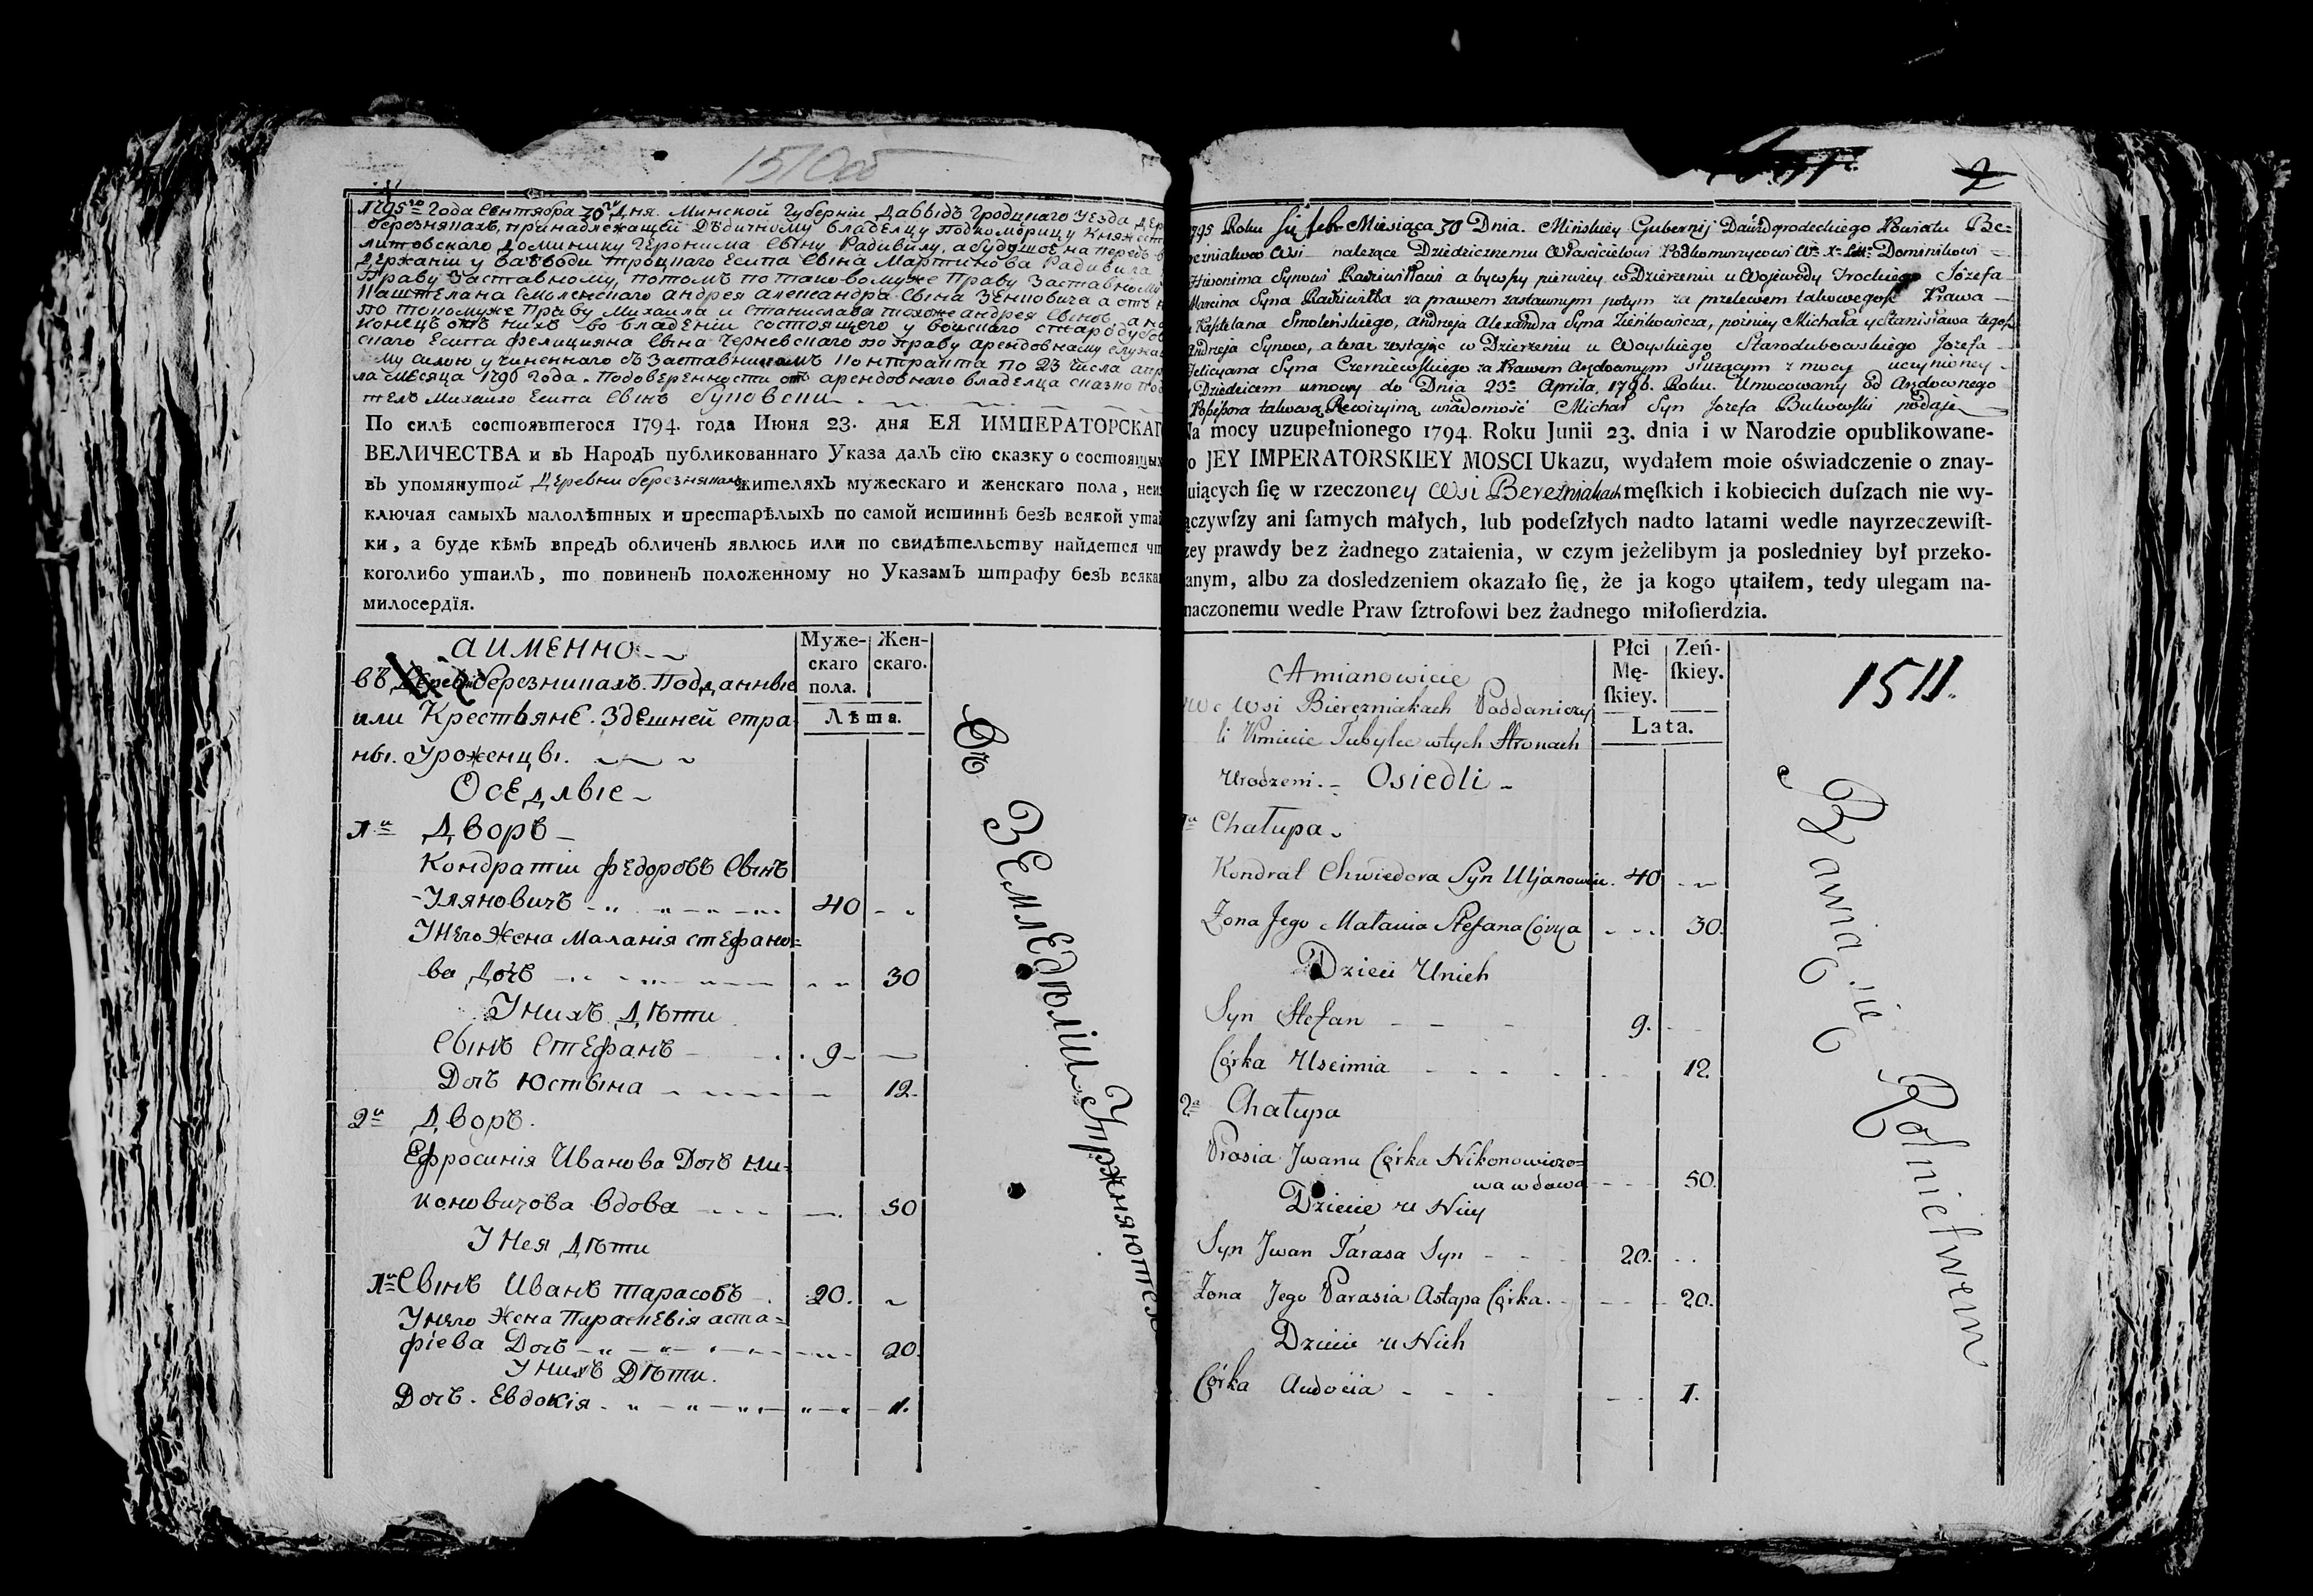 1510об
1795го Года Сентября 30го Дня. Минской Губерніи Давыдъ Гродцкаго Уезда
березнякахъ, принадлежащей Дѣдичному владелцу Подкоморицу
литовскаго Доминику Геронима Сыну Радивилу, а будущое на передъ
держаніи у Ваеводи троцкаго Есипа Сына Мартинова Радивила
Праву Заставному, потомъ по таковомуже Праву Заставному
Каштеляна Смоленскаго андрея александра Сына Зенковича а отъ
по томуже Праву Михаила и Станислава тогоже андрея Сыновъ
Конецъ отъ нихъ во владении состоящего у войскаго стародубов
скаго Есипа Фелицияна Сына Черневскаго по праву арендовному
му силою учиненнаго съ Заставникамъ Контракта по 23 числа
ла месяца 1796 года. Подоверенности отъ арендовнаго владелца сказко
тель Михаило Есипа Сынъ
По силѣ состоявшегося 1794. года Июня 23. дня ЕЯ ИМПЕРАТОРСКАГ
ВЕЛИЧЕСТВА и въ Народъ публикованнаго Указа далъ сїю сказку о состоящих
въ упомянутой Деревни березнякахъ жителяхъ мужескаго и женскаго пола, неи
ключая самыхъ малолѣтных и престарѣлыхъ по самой истиннѣ безъ всякой утай
ки, а буде кѣмъ впредъ обличенъ явлюсь или по свидѣтельству найдется чт
коголибо утаилъ, то повиненъ положенному по Указамъ штрафу безъ всяка
милосердїя.
аименно
Муже-скаго пола. Жен-скаго.
Лѣта.
въ Деревни березникахъ. Подданные
или Крестьяне. Здешней стра
ны. Уроженцы.
Оседлые
1й Дворъ
Кондратіи Федоровъ Сынъ
Уляновичъ 40
Унего Жена Маланія стефано=
ва Дочь 30
Унихъ Дѣти
Сынъ Стефанъ 9
Дочь Юстына 12.
2й Дворъ.
Ефросинія Иванова Дочь Ни=
коновичова вдова 50
У Нея Дѣти
1й Сынъ Иванъ тарасовъ 20.
Унего Жена Параскевія аста=
фіева Дочь 20.
Унихъ Дѣти.
Дочь. Евдокія 1.
Въ Земледѣліи Упржняютсь
2
1795 Roku Miesiąca 30 Dnia. Mińskiey Gubernij Dawidgrodeckiego Powiatu Be=
rezniakow Wsi należące Dziedzicznemu Właścicielowi Podkomorzycowi Wo Xa Litto Dominikowi
Hieronima Synowi Radziwiłłowi a bywszy pierwiey w Dzierżeniu u Wojewody Trockiego Józefa
Marcina Syna Radziwiłła za prawem zastawnym potym za przelewem takowegoż Prawa
Kasztelana Smoleńskiego, Andrzeja Alexandra Syna Zieńkowicza, pozniey Michała y Stanisława tegoż
Andrzeja Synow, a teraz zostając w Dzierżeniu u Woyskiego Starodubowskiego Józefa
Felicyana Syna Czerniewskiego za Prawem Arędownym służącym z mocy uczynioney
z Dziedzicem umowy do Dnia 23o Aprila 1796. Roku. Umocowany od Arędownego
Possessora takową Rewizyiną wiadomość Michał Syn Józefa Bukowski podaje
Na mocy uzupełnionego 1794. Roku Junii 23. dnia i w Narodzie opublikowane-
go JEY IMPERATORSKIEY MOSCI Ukazu, wydałem moie oświadczenie o znay-
duiących ſię w rzeczoney Wsi Bereźniakach męſkich i kobiecich duſzach nie wy-
łączywſzy ani ſamych małych, lub podeſzłych nadto latami wedle nayrzeczewiſt-
zey prawdy bez żadnego zataienia, w czym jeżelibym ja posledniey był przeko-
nanym, albo za dosledzeniem okazało ſię, że ja kogo utaiłem, tedy ulegam na-
znaczonemu wedle Praw ſztrofowi bez żadnego miłoſierdzia.
Amianowicie
Płci Mę-ſkiey. Zeń-ſkiey.
Lata.
1511.
We Wsi Bierezniakach Poddaniczy
li Kmiecie Tubylce wtych Stronach
Urodzeni. Osiedli
1a Chałupa
Kondrat Chwiedora Syn Uljanowicz. 40
Zona Jego Matania Stefana Córka 30.
Dzieci Unich
Syn Stefan 9.
Córka Uscimia 12.
2a Chałupa
Prosia Jwana Córka Nikonowiczo=
wa wdowa 50.
Dziecie u Niey
Syn Jwan Tarasa Syn 20.
Zona Jego Parasia Astapa Córka. 20.
Dziecie u Nich
Córka Audocia 1.
Bawią się Rolnictwem